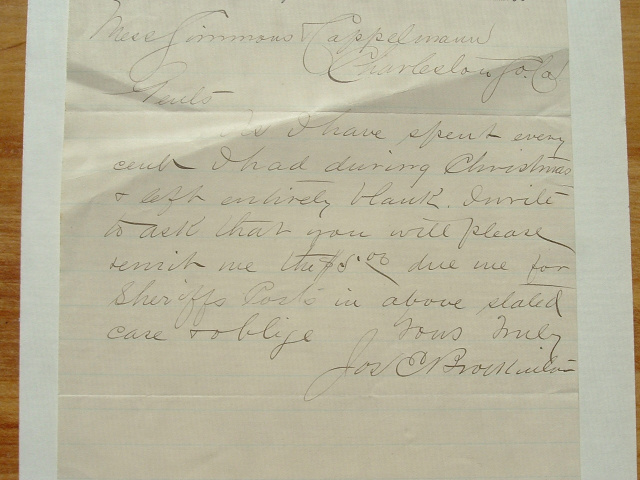 Mess Simmons & Cappelmann
Charleston So. Ca
Gents
As I have spent every
cent I had during Christmas
& left entirely blank. I write
to ask that you will please
remit me the $5.00 due me for
Sheriffs Costs in above stated
case & oblige Yours Truly
Jos C Brockinton